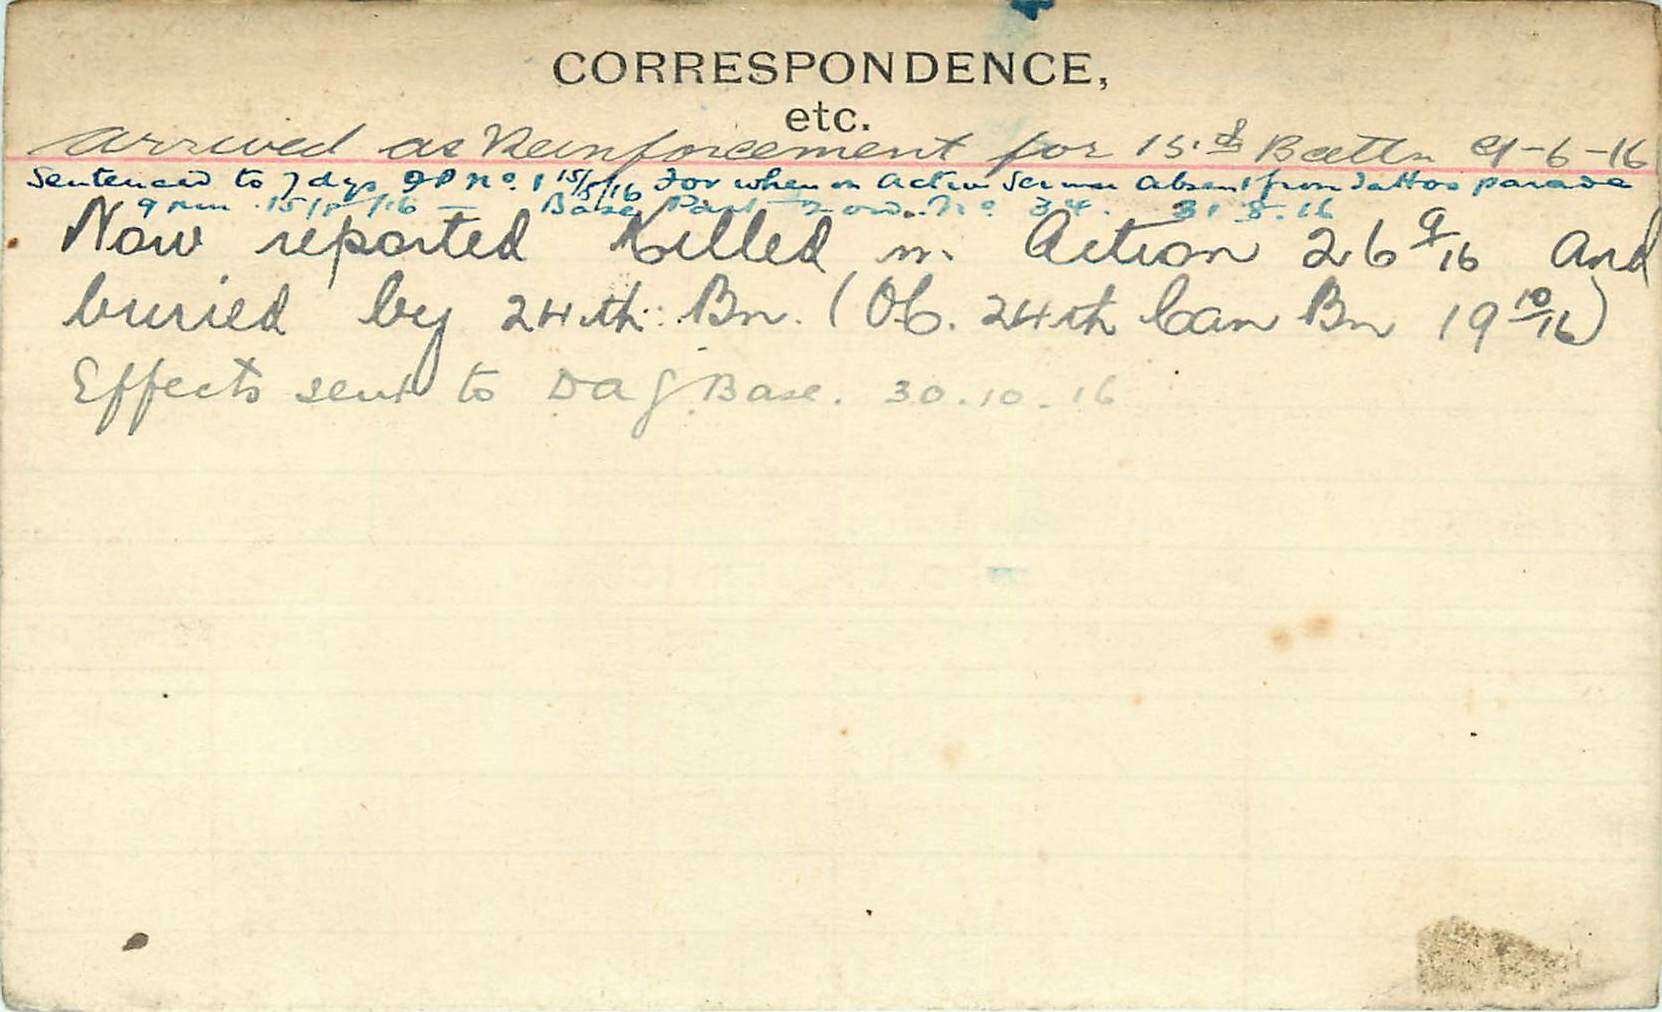 CORRESPONDENCE,
etc.
Arrived as Reinforcement for 13.th Battn 9-6-16
Sentenced to 7 dys FP No. 1 15/5/16 For when on Active Service Absent from Tattoo parade
9 pm 15/5/16 — Base Part 2 ord. No 34. 31.8.16
Now reported Killed in Action 26 9/16 and
buried by 24th Bn. (OC. 24th Can Bn 19 10/16)
Effects sent to DAG Base. 30.10.16